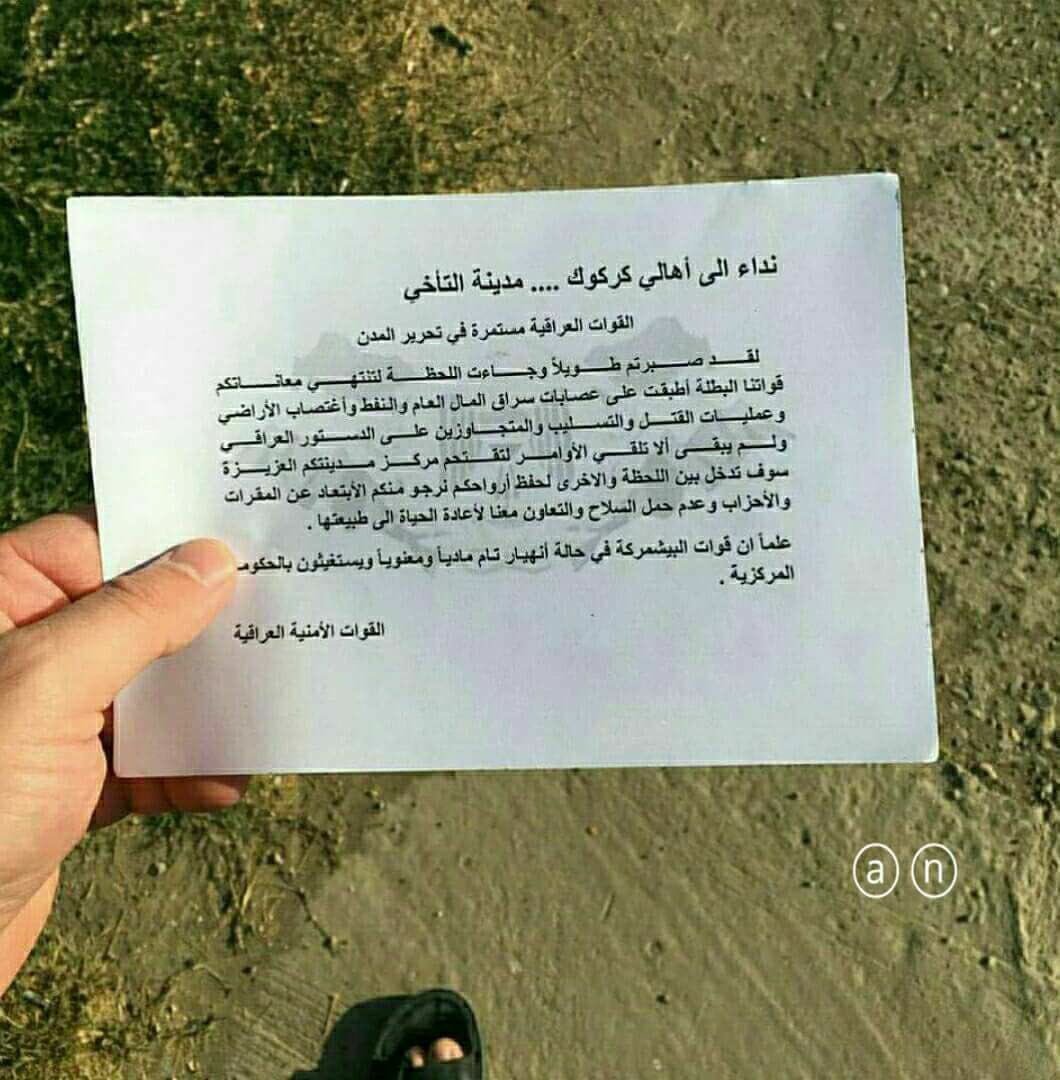 نداء الى أهالي كركوك .... مدينة التأخي
القوات العراقية مستمرة في تحرير المدن
لقد صبرتم طويلاً وجاءت اللحظة لتنتهي معاناتكم
قواتنا البطلة أطبقت على عصابات سراق المال العام والنفط وأغتصاب الأراضي
وعمليات القتل والتسليب والمتجاوزين على الدستور العراقي
ولم يبقى ألا تلقي الأوامر لتقتحم مركز مدينتكم العزيزة
سوف تدخل بين اللحظة والاخرى لحفظ أرواحكم نرجو منكم الأبتعاد عن المقرات
والأحزاب وعدم حمل السلاح والتعاون معنا لأعادة الحياة الى طبيعتها .
علماً ان قوات البيشمركة في حالة أنهيار تام مادياً ومعنوياً ويستغيثون
المركزية .
القوات الأمنية العراقية
a n